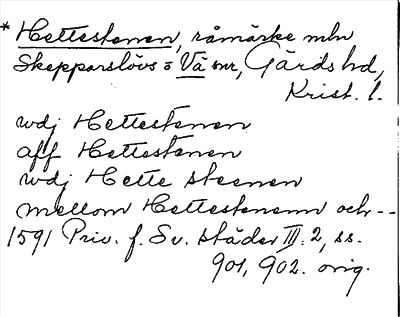 * Hettestenen, råmärke mln
Skepparslövs o Vä snr, Gärds hd,
Krist. l.
wdj Hettestenen
aff Hettestenen
wdj Hette steenen
mellom Hettestenenn och --
1591 Priv. f. Sv. städer III. 2, ss.
901, 902. orig.